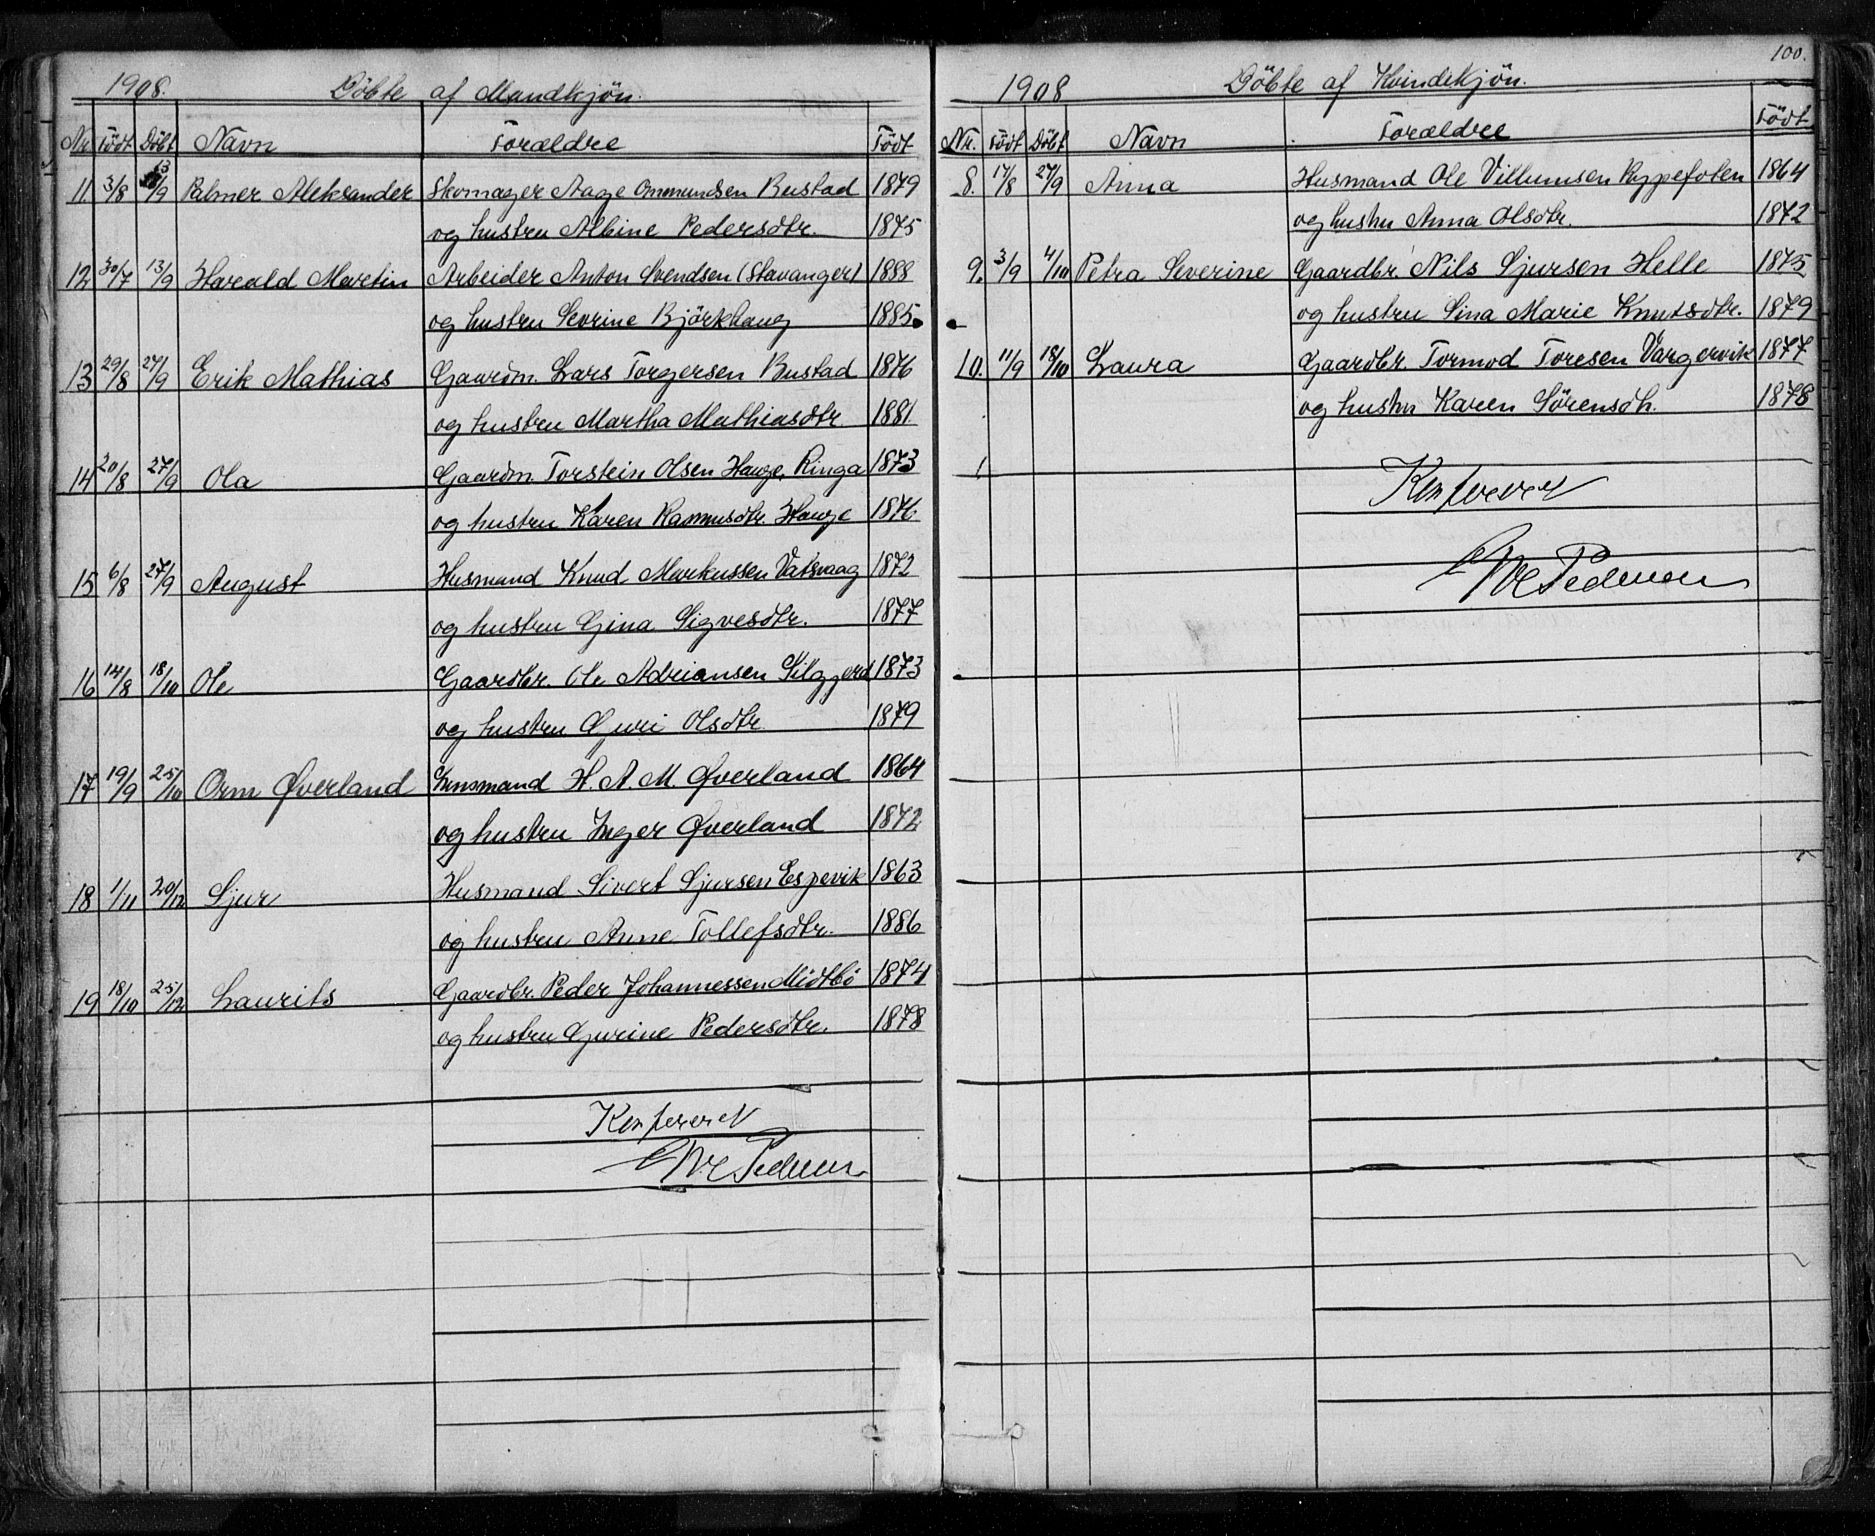 1908. Döbte af Mandkjön.
Nr. Födt Döbt Navn Forældre Födt
11. 3/8 13/9 Palmer Aleksander Skomager Aage Ommundsen Bustad 1879
og hustru Albine Pedersdtr. 1875
12 30/7 13/9 Harald Martin Arbeider Anton Svendsen (Stavanger) 1888
og hustru Sevrine Björkhaug 1885
13 29/8 27/9 Erik Mathias Gaardm. Lars Torgersen Bustad 1876
og hustru Martha Mathiasdtr. 1881
14 20/8 27/9 Ola Gaardm. Torstein Olsen Hauge, Ringa 1873
og hustru Karen Rasmusdtr. Hauge 1876
15 6/8 27/9 August Husmand Knud Markussen Vatsvaag 1872
og hustru Gina Sigvesdtr. 1877
16 14/8 18/10 Ole Gaardbr. Ole Adriansen 1873
og hustru Guri Olsdtr 1879
17 19/9 25/10 Orm Øverland Lensmand H. A. M. Øverland 1864
og hustru Inger Øverland 1872
18 1/11 20/12 Sjur Husmand Sivert Sjursen Espevik 1863
og hustru Anne Tollefsdtr. 1886
19 18/10 25/12 Laurits Gaardbr. Peder Johannessen Midtbö 1874
og hustru Gurine Pedersdtr. 1878
Konfereret
Pedersen
100.
1908 Döbte af Kvindekjön.
Nr. Födt Döbt Navn Forældre Födt
8. 17/8 27/9 Anna Husmand Ole Villumsen Ryppefoten 1864
og hustru Anna Olsdtr. 1872
9. 3/9 4/10 Petra Severine Gaardbr. Nils Sjursen Helle 1875
og hustru Sina Marie Knutsdtr. 1879
10. 11/9 18/10 Laura Gaardbr. Tormod Toresen Vargervik 1877
og hustru Karen Sörensdtr. 1878
Konfereret
Pedersen